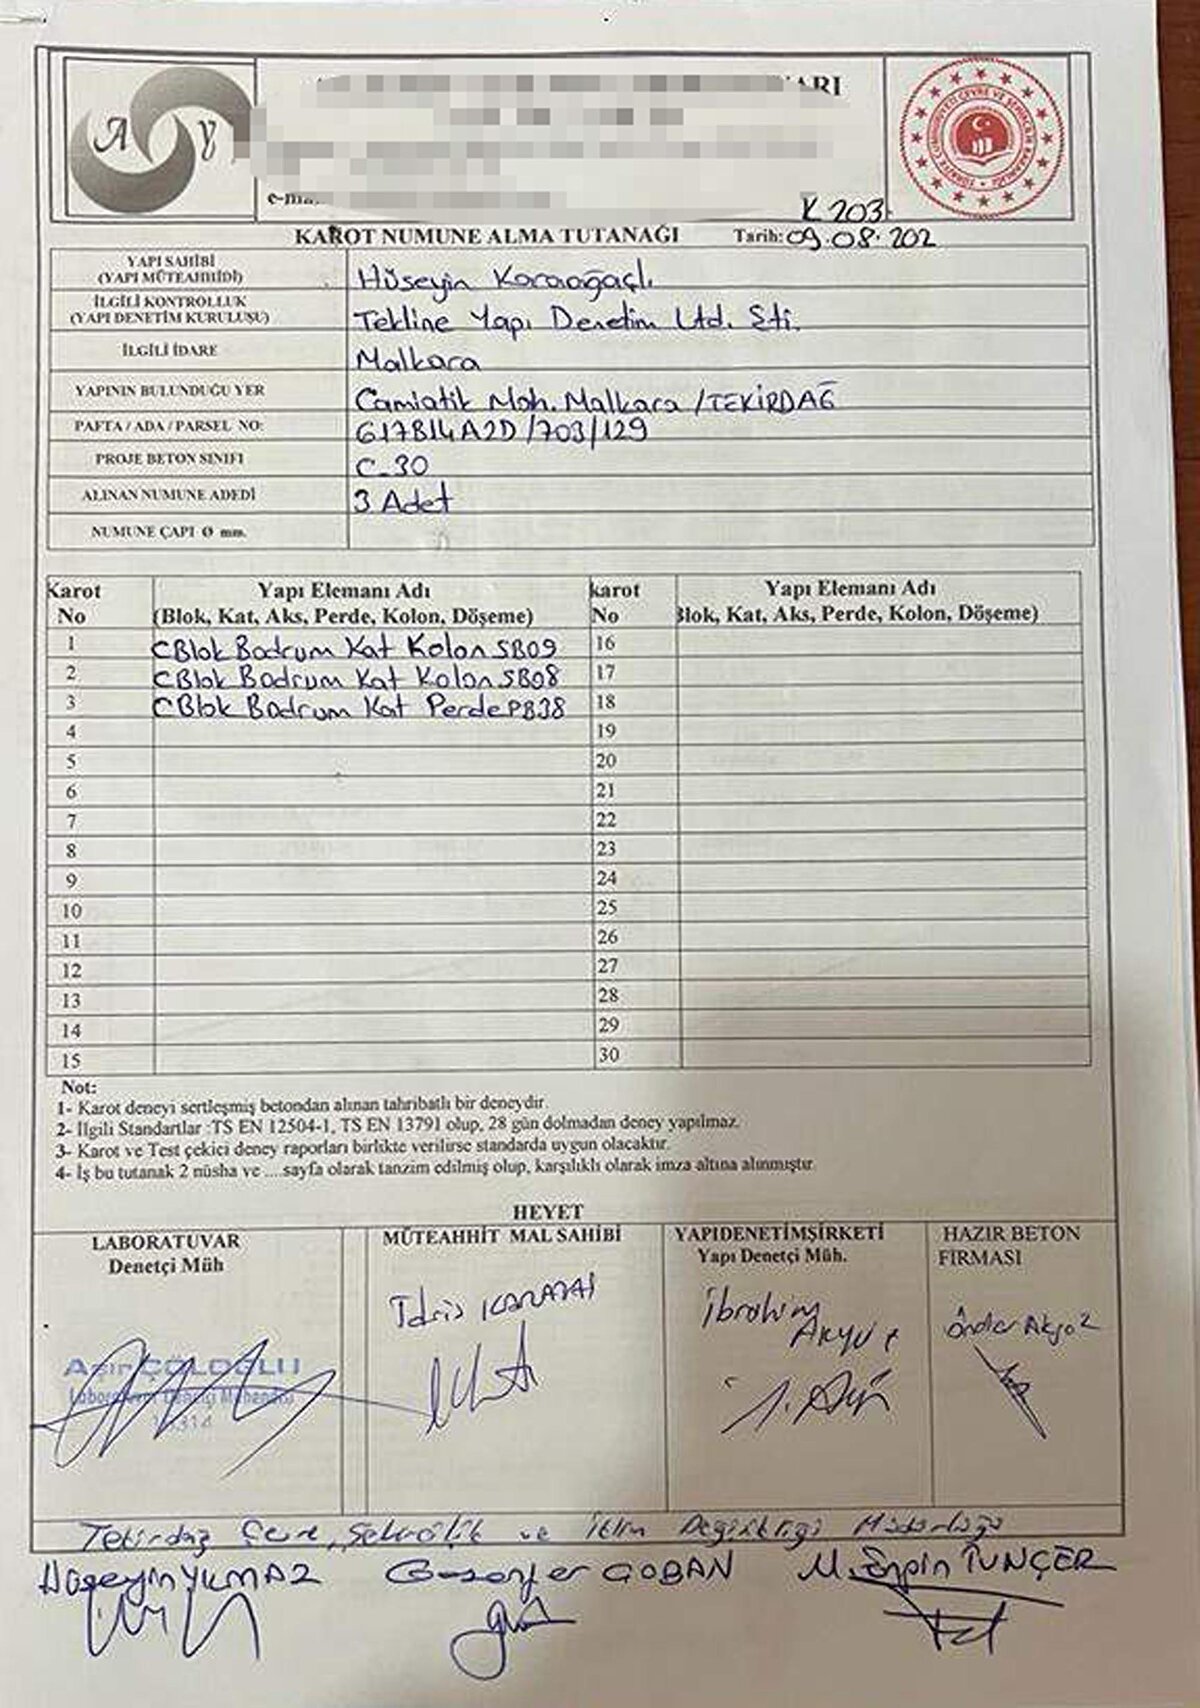 A Y
ARI
e-ma
TÜRKİYE CUMHURİYETİ ÇEVRE VE ŞEHİRCİLİK BAKANLIĞI
K 203
KAROT NUMUNE ALMA TUTANAĞI Tarih: 09.08.202
YAPI SAHİBİ
(YAPI MÜTEAHHİDİ) Hüseyin Karaağaçlı
İLGİLİ KONTROLLUK
(YAPI DENETİM KURULUŞU) Tekline Yapı Denetim Ltd. Şti.
İLGİLİ İDARE Malkara
YAPININ BULUNDUĞU YER Camiatik Mah. Malkara / TEKİRDAĞ
PAFTA / ADA / PARSEL NO: G17B14A2D/703/129
PROJE BETON SINIFI C-30
ALINAN NUMUNE ADEDİ 3 Adet
NUMUNE ÇAPI Ø mm.
Karot Yapı Elemanı Adı karot Yapı Elemanı Adı
No (Blok, Kat, Aks, Perde, Kolon, Döşeme) No Blok, Kat, Aks, Perde, Kolon, Döşeme)
1 C Blok Bodrum Kat Kolon SB09 16
2 C Blok Bodrum Kat Kolon SB08 17
3 C Blok Bodrum Kat Perde PB38 18
4 19
5 20
6 21
7 22
8 23
9 24
10 25
11 26
12 27
13 28
14 29
15 30
Not:
1- Karot deneyi sertleşmiş betondan alınan tahribatlı bir deneydir.
2- İlgili Standartlar :TS EN 12504-1, TS EN 13791 olup, 28 gün dolmadan deney yapılmaz.
3- Karot ve Test çekici deney raporları birlikte verilirse standarda uygun olacaktır.
4- İş bu tutanak 2 nüsha ve ....sayfa olarak tanzim edilmiş olup, karşılıklı olarak imza altına alınmıştır.
HEYET
LABORATUVAR MÜTEAHHİT MAL SAHİBİ YAPIDENETİMŞİRKETİ HAZIR BETON
Denetçi Müh Yapı Denetçi Müh. FİRMASI
İdris İbrahim
Akyut Önder Akgöz
Aşır ÇÖLOĞLU
Laboratuvar Denetçi Mühendisi
Tekirdağ Çevre, Şehircilik ve İklim Değişikliği Müdürlüğü
Hüseyin YILMAZ ÇOBAN TUNÇER